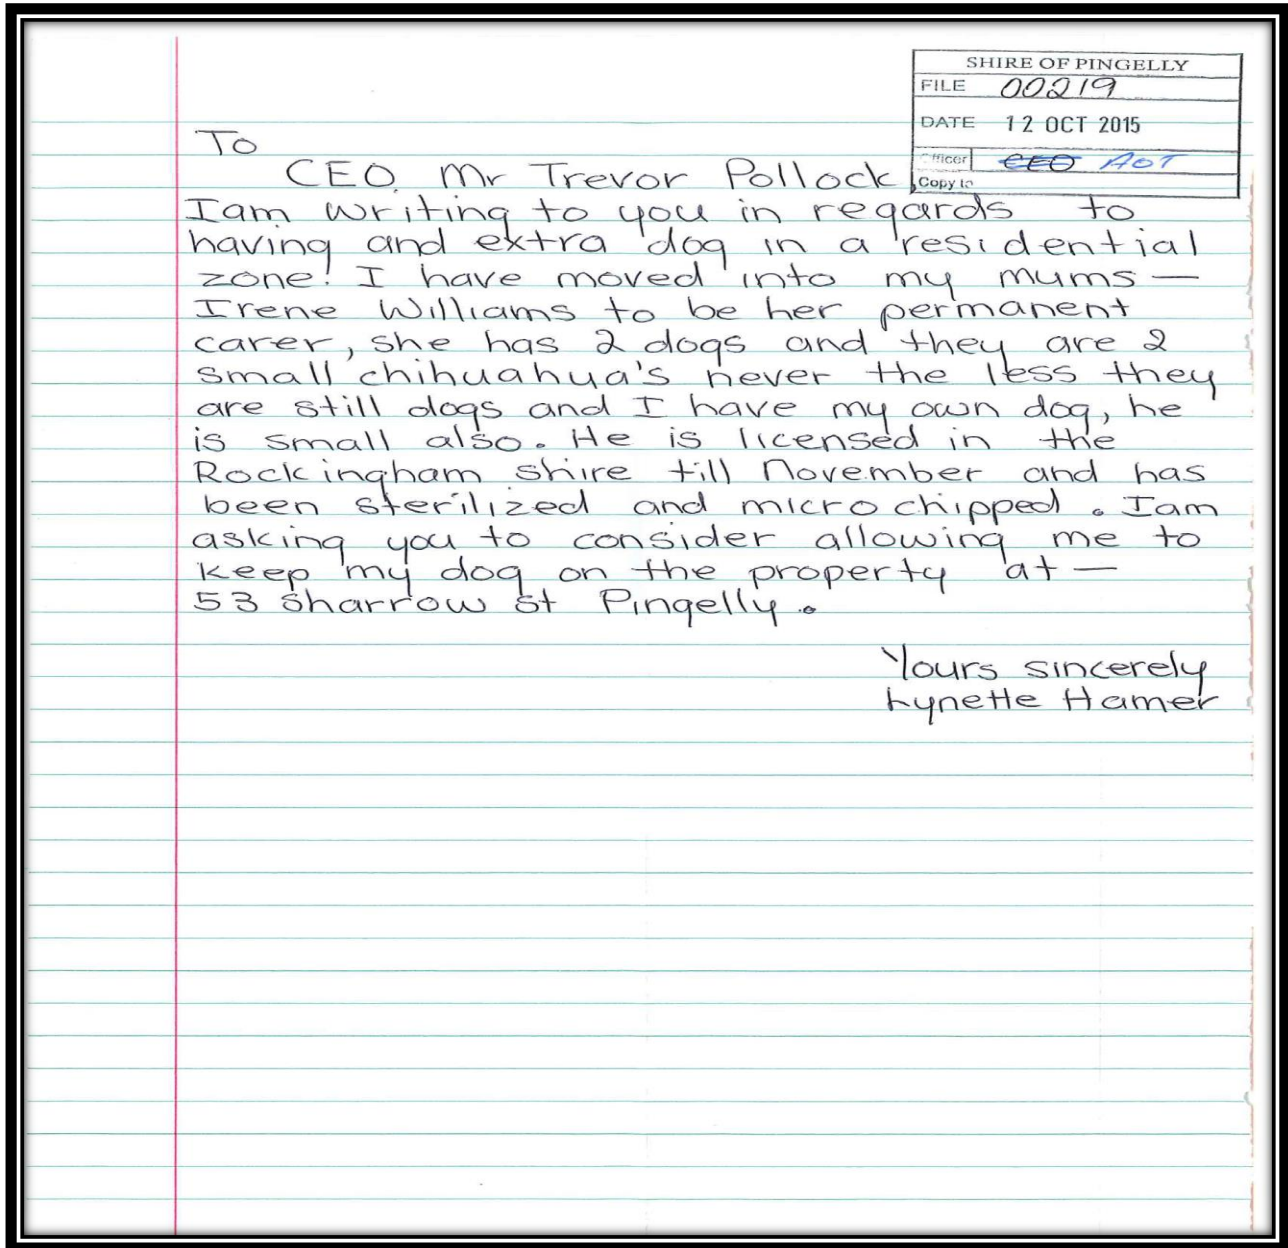 SHIRE OF PINGELLY
FILE 00219
DATE 12 OCT 2015
Officer CEO AOT
Copy to
To
CEO. Mr Trevor Pollock,
Iam writing to you in regards to
having and extra dog in a residential
zone! I have moved into my mums —
Irene Williams to be her permanent
carer, she has 2 dogs and they are 2
small chihuahua's never the less they
are still dogs and I have my own dog, he
is small also. He is licensed in the
Rockingham shire till November and has
been sterilized and micro chipped. Iam
asking you to consider allowing me to
keep my dog on the property at —
53 Sharrow St Pingelly.
Yours sincerely
Lynette Hamer